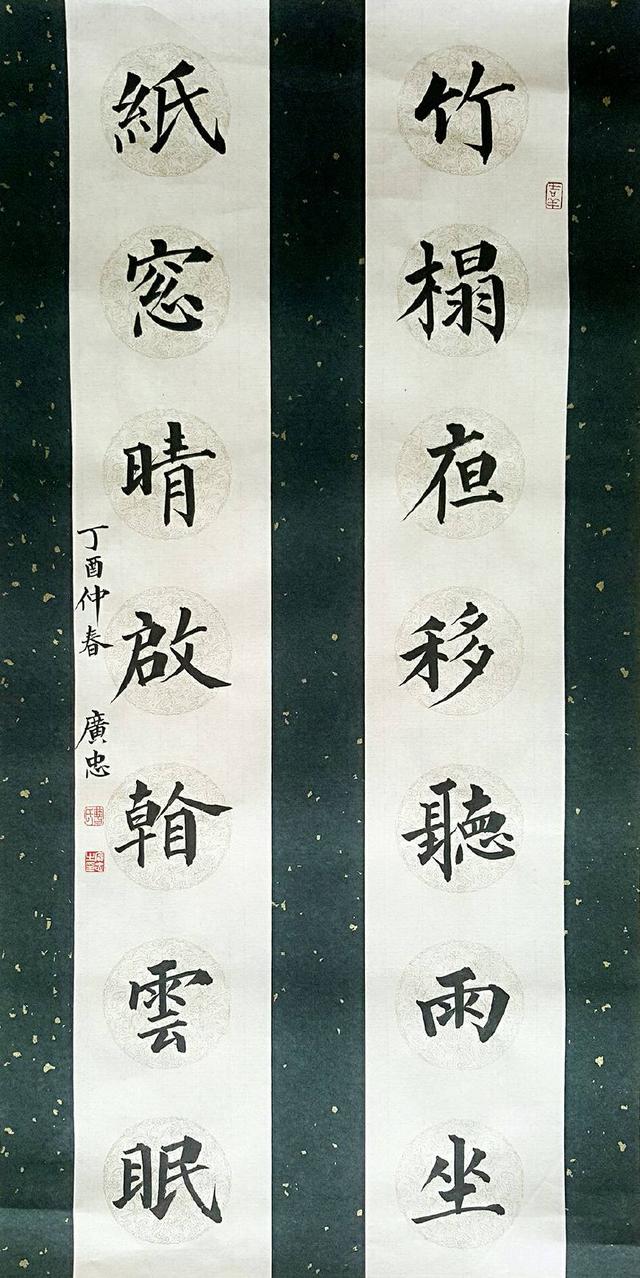 竹榻亱移聽雨坐
吉羊
紙窓晴啟看雲眠
丁酉仲春 廣忠